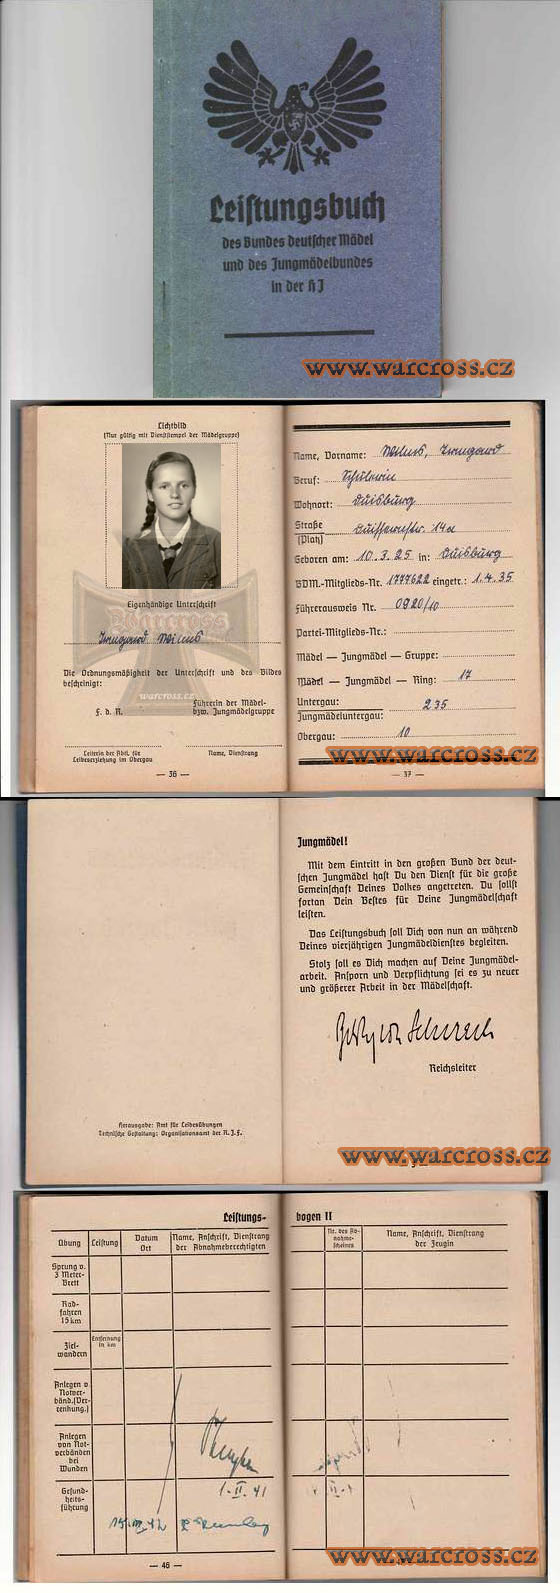 Leistungsbuch
des Bundes Deutscher Mädel
und des Jungmädelbundes
in der HJ
www.warcross.cz
Lichtbild
(Nur gültig mit Dienststempel der Mädelgruppe)
Eigenhändige Unterschrift
Irmgard
Warcross
Die Ordnungsmäßigkeit der Unterschrift und des Bildes
bescheinigt:
warcross.cz
F. d. R.
Führerin der Mädel-
bzw. Jungmädelgruppe
Leiterin der Abtl. für
Leibeserziehung im Obergau
Name, Dienstrang
— 36 —
Name, Vorname: Irmgard
Beruf: Schülerin
Wohnort: Duisburg
Straße 14a
(Platz)
Geboren am: 10.3.25 in: Duisburg
BDM.-Mitglieds-Nr. 1777622 eingetr.: 1.4.35
Führerausweis Nr. 0920/10
Partei-Mitglieds-Nr.:
Mädel — Jungmädel — Gruppe:
Mädel — Jungmädel — Ring: 17
Untergau: 235
Jungmädeluntergau:
Obergau: 10
www.warcross.cz
— 37 —
Herausgabe: Amt für Leibesübungen
Technische Gestaltung: Organisationsamt der R.J.F.
Jungmädel!
Mit dem Eintritt in den großen Bund der deut-
schen Jungmädel hast Du den Dienst für die große
Gemeinschaft Deines Volkes angetreten. Du sollst
fortan Dein Bestes für Deine Jungmädelschaft
leisten.
Das Leistungsbuch soll Dich von nun an während
Deines vierjährigen Jungmädeldienstes begleiten.
Stolz soll es Dich machen auf Deine Jungmädel-
arbeit. Ansporn und Verpflichtung sei es zu neuer
und größerer Arbeit in der Mädelschaft.
Reichsleiter
www.warcross.cz
Leistungs- bogen II
Übung
Leistung
Datum
Ort
Name, Anschrift, Dienstrang
der Abnahmeberechtigten
Nr. des Ab-
nahme-
scheines
Name, Anschrift, Dienstrang
der Zeugin
Sprung v.
3 Meter-
Brett
Rad-
fahren
15 km
Ziel-
wandern
Entfernung
in km
Anlegen v.
Notver-
bänd.(Ver-
renkung.)
Anlegen
von Not-
verbänden
bei
Wunden
Gesund-
heits-
führung
1.II.41
— 46 —
www.warcross.cz